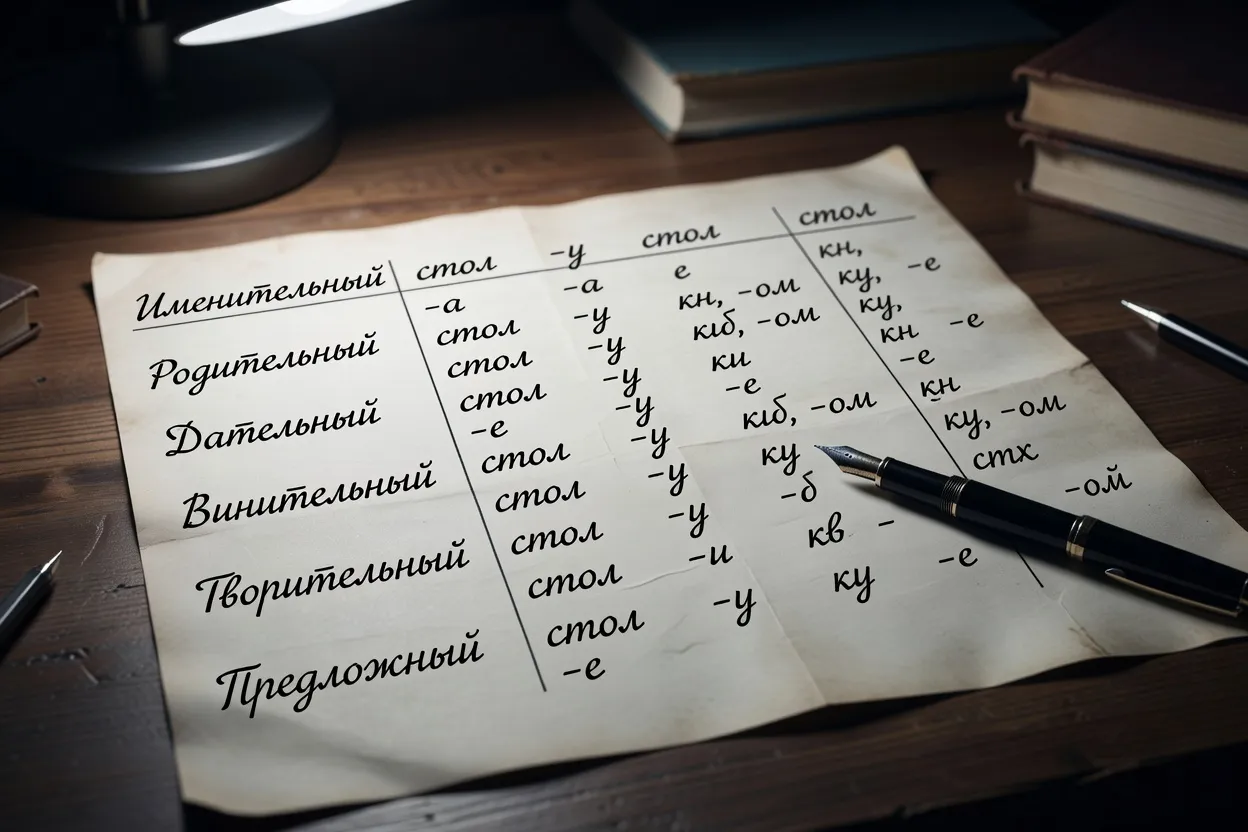 Именительный стол -у стол стол
-а -а е кн,
стол -у кн, -ом ку, -е
Родительный стол -у кıб, -ом ку,
стол -у ки кн -е
Дательный -е -у -е -е
стол -у кıб, -ом кн
Винительный стол -у ку ку, -ом
стол -у -б стх
Творительный стол -и кв - -ой
стол -у ку -е
Предложный -е